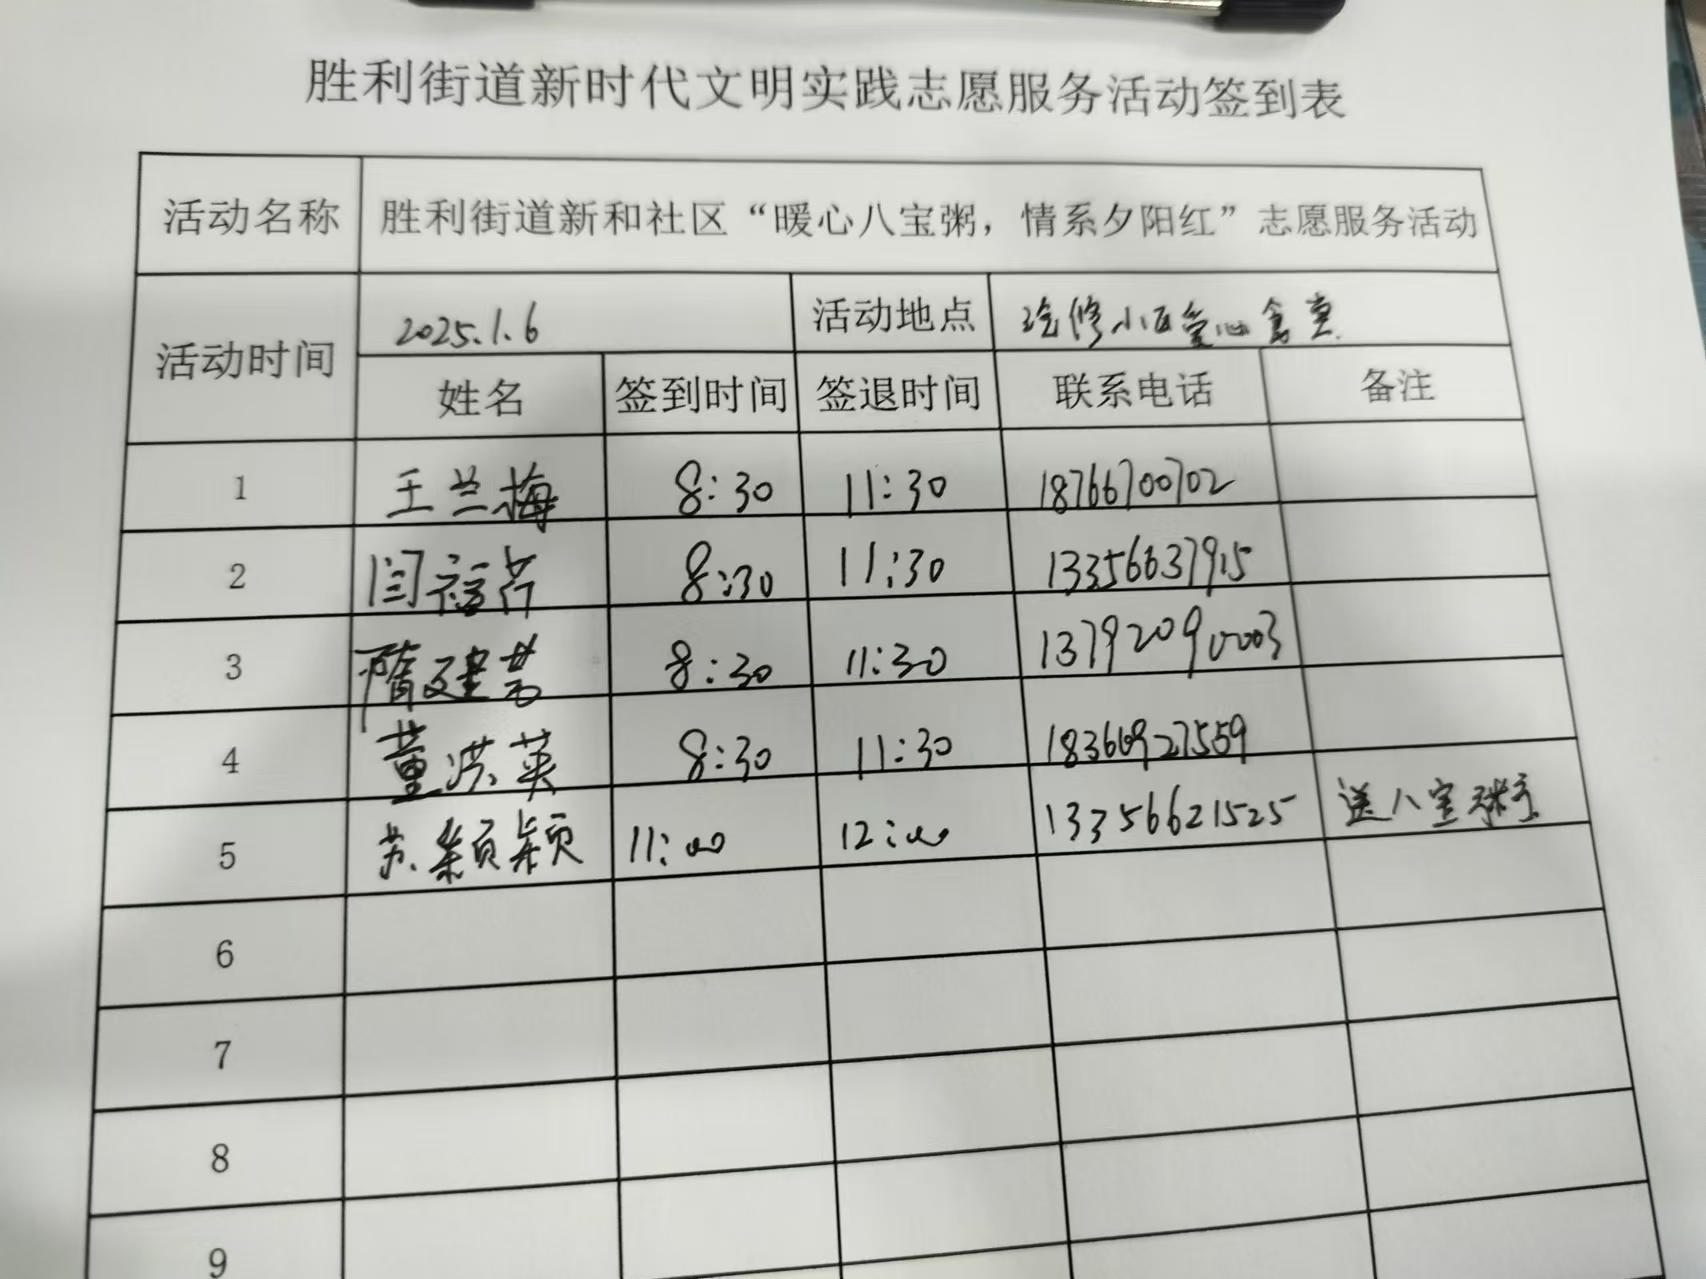 胜利街道新时代文明实践志愿服务活动签到表
活动名称 胜利街道新和社区“暖心八宝粥，情系夕阳红”志愿服务活动
活动时间 2025.1.6 活动地点 汽修小区爱心食堂
姓名 签到时间 签退时间 联系电话 备注
1 王兰梅 8:30 11:30 18766700702
2 闫福芹 8:30 11:30 13356637915
3 隋建芳 8:30 11:30 13792090003
4 董洪英 8:30 11:30 18366927559
5 苏颖颖 11:00 12:00 13356621525 送八宝粥
6
7
8
9